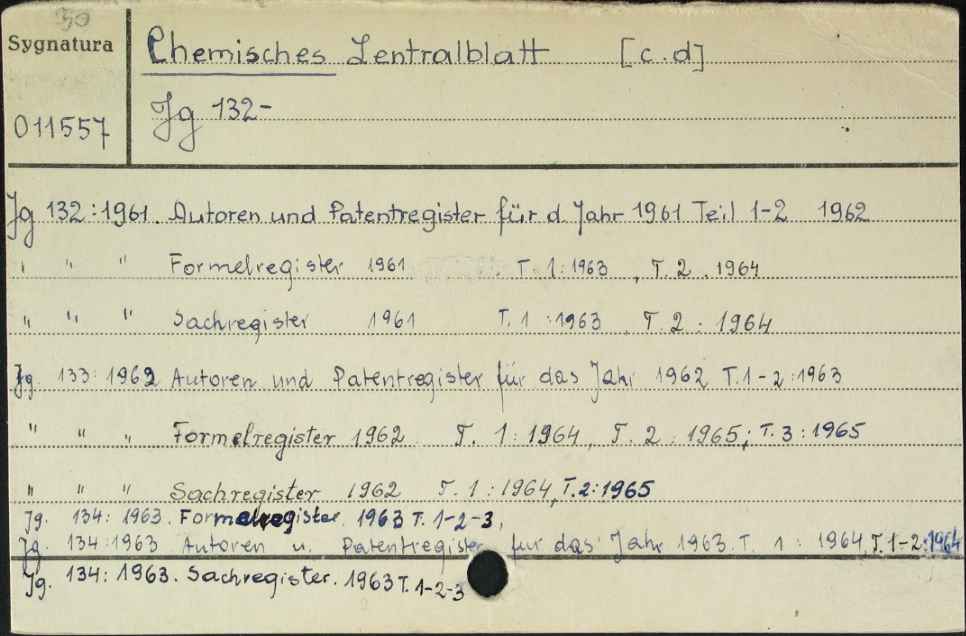 50
Sygnatura
Chemisches Zentralblatt [c.d]
011557
Jg 132-
Jg 132:1961. Autoren und Patentregister für d. Jahr 1961 Teil 1-2 1962
" " " Formelregister 1961 T. 1:1963, T. 2. 1964
" " " Sachregister 1961 T. 1:1963, T. 2: 1964
Jg. 133:1962 Autoren und Patentregister für das Jahr 1962 T. 1-2:1963
" " " Formelregister 1962 T. 1:1964, T. 2: 1965; T. 3:1965
" " " Sachregister 1962 T. 1:1964, T. 2:1965
Jg. 134: 1963. Formelregister. 1963 T. 1-2-3,
Jg. 134:1963 Autoren u. Patentregister für das Jahr 1963. T. 1: 1964, T. 1-2:1964
Jg. 134: 1963. Sachregister. 1963 T. 1-2-3